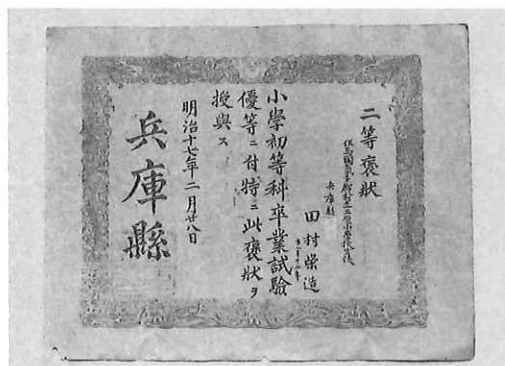 二等褒狀
兵庫縣
田村榮造
小學初等科卒業試驗
優等ニ付特ニ此褒狀ヲ
授與ス
明治十七年二月廿八日
兵庫縣